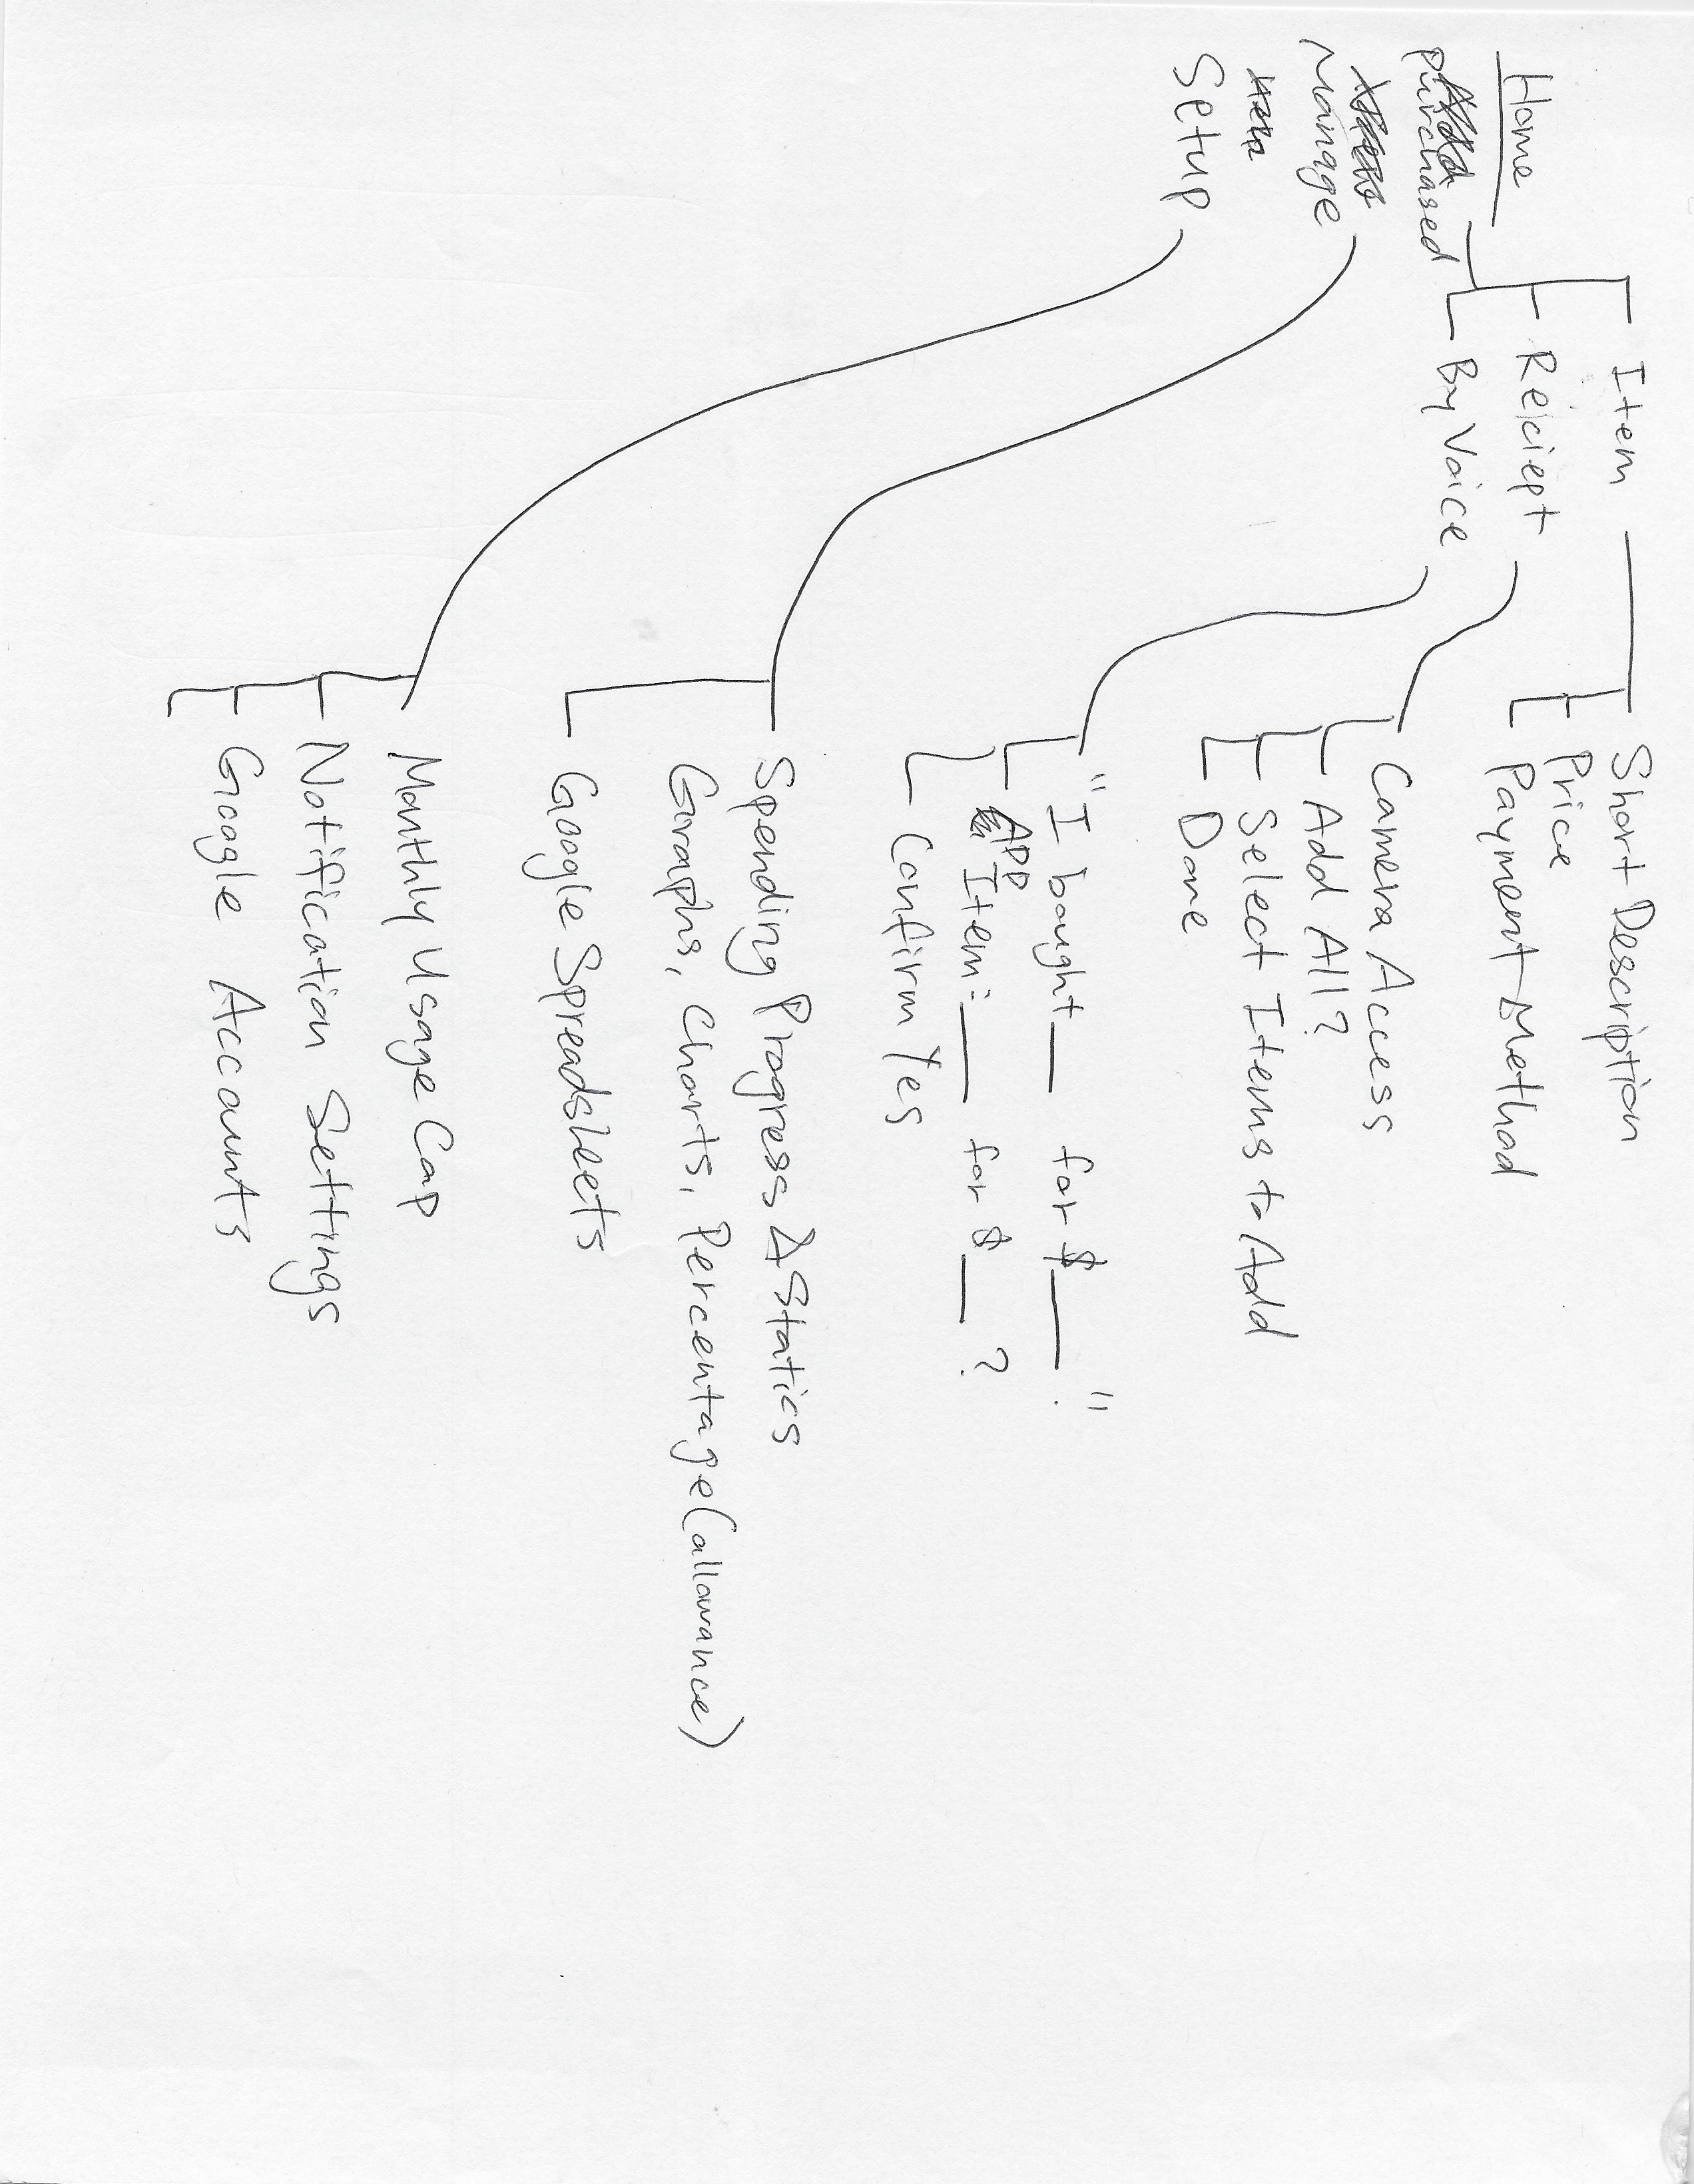 Home
Purchased
Manage
Setup
Item
Reiciept
By Voice
Short Description
Price
Payment Method
Camera Access
Add All?
Select Items to Add
Done
"I bought ___ for $___."
ADD Item: ___ for $___?
Confirm Yes
Spending Progress & Statics
Graphs, Charts, Percentage (allowance)
Google Spreadsheets
Monthly Usage Cap
Notification Settings
Google Accounts